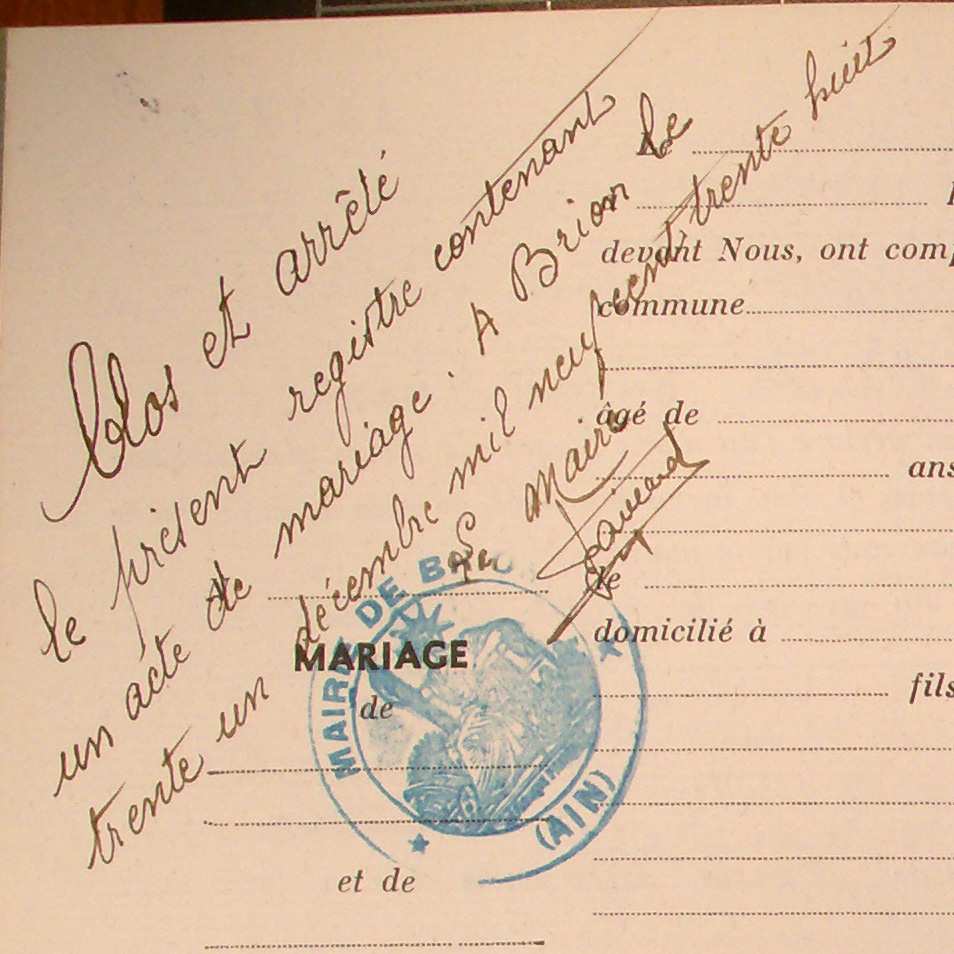 Clos et arrêté
le présent registre contenant
un acte de mariage. A Brion le
trente un décembre mil neuf cent trente huit
Le Maire
MAIRIE DE BRION
(AIN)
MARIAGE
de
et de
Le
devant Nous, ont comp
commune
âgé de
ans
de
domicilié à
fils